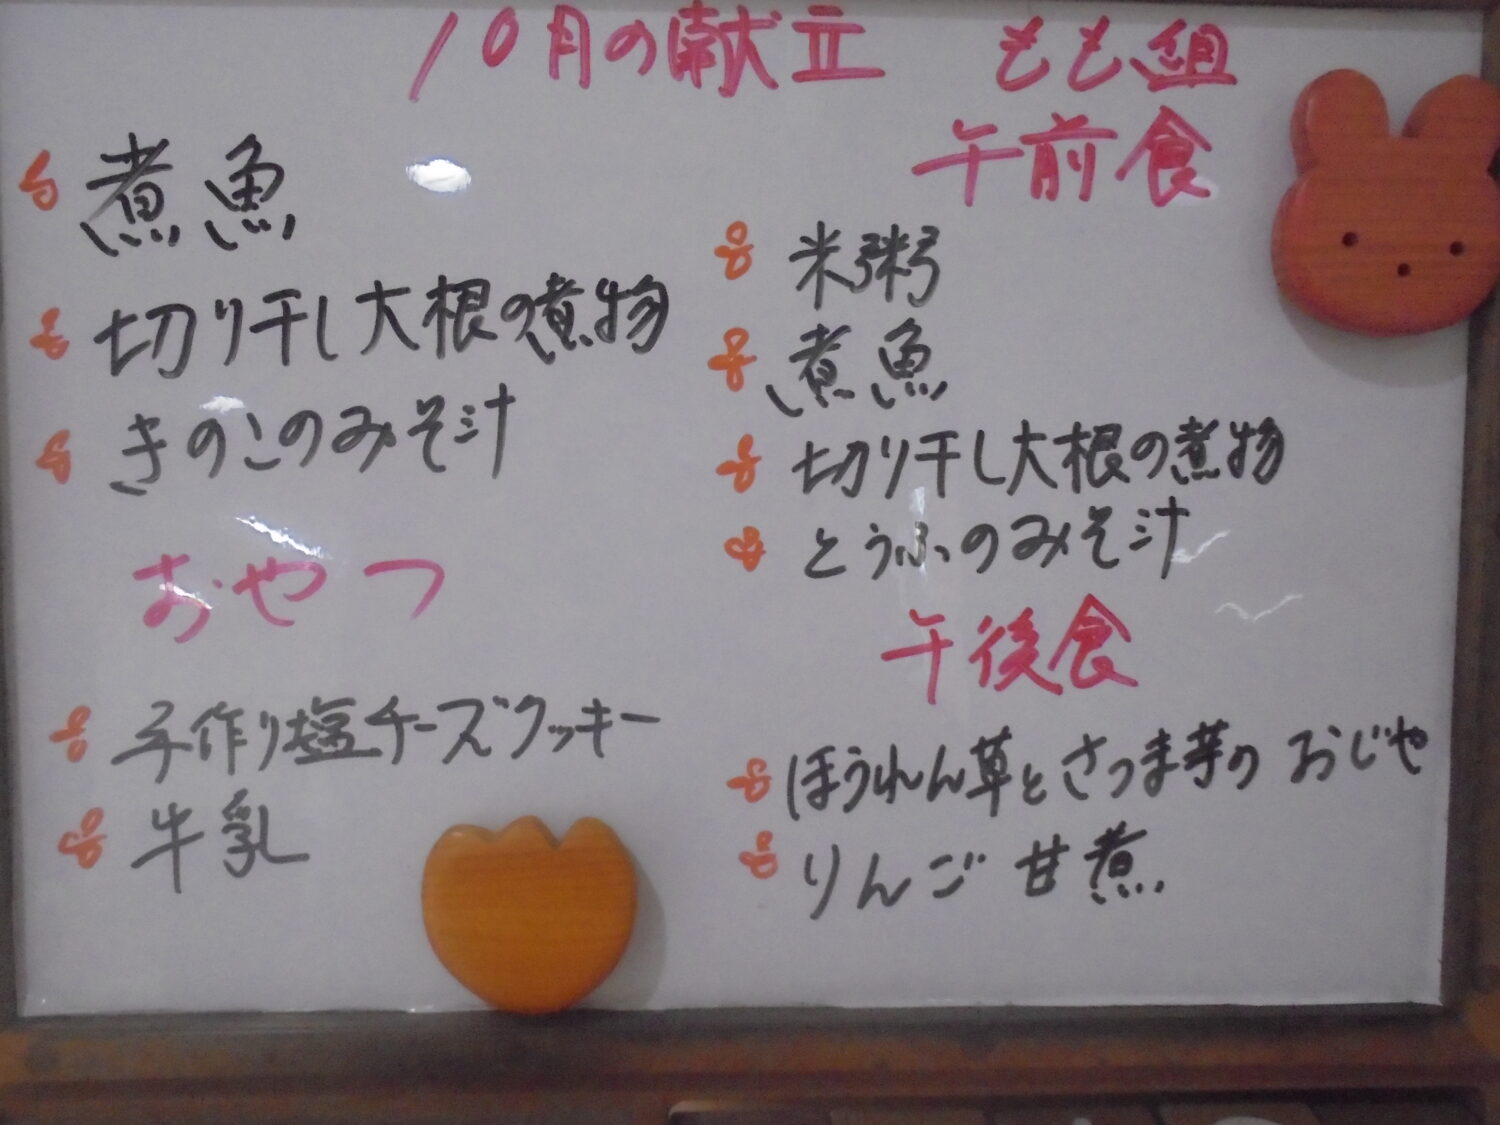 10月の献立 もも組
煮魚
切り干し大根の煮物
きのこのみそ汁
おやつ
手作り塩チーズクッキー
牛乳
午前食
米粥
煮魚
切り干し大根の煮物
とうふのみそ汁
午後食
ほうれん草とさつま芋の おじや
りんご 甘煮